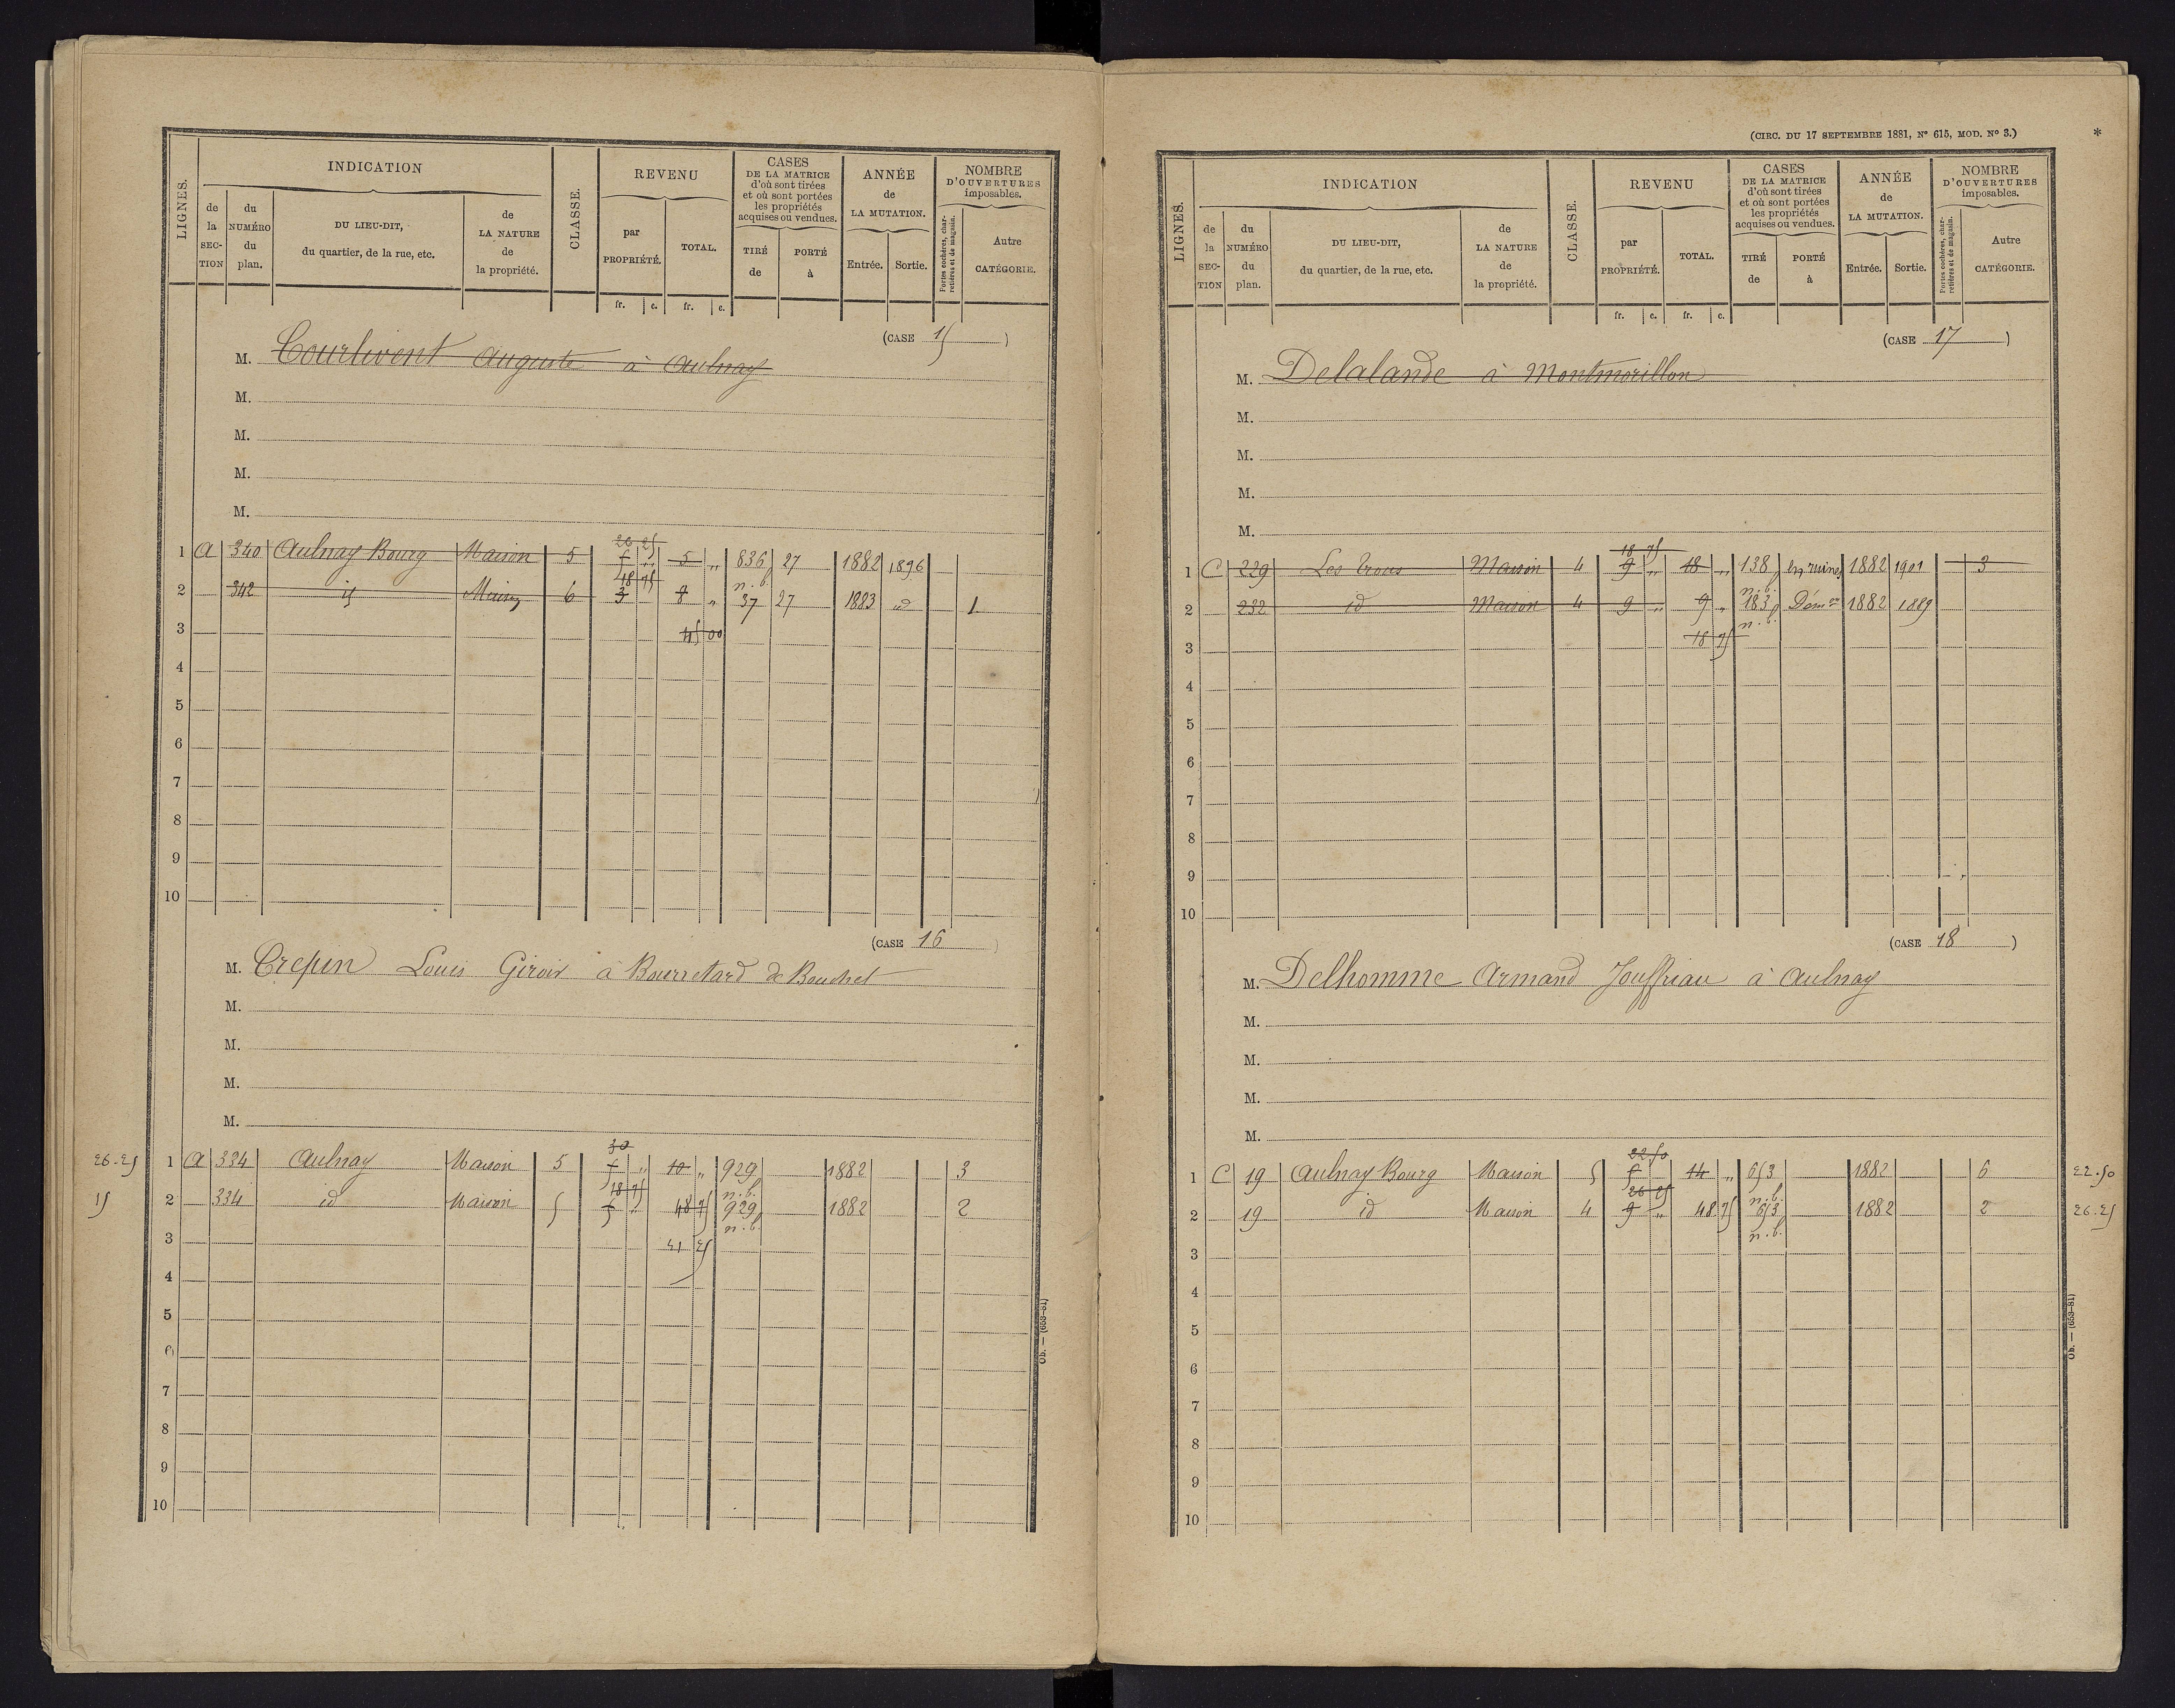 LIGNES.
INDICATION
de la SECTION
du NUMÉRO du plan.
DU LIEU-DIT, du quartier, de la rue, etc.
de LA NATURE de la propriété.
CLASSE.
REVENU
par PROPRIÉTÉ.
TOTAL.
CASES DE LA MATRICE d'où sont tirées et où sont portées les propriétés acquises ou vendues.
TIRÉ de
PORTÉ à
ANNÉE de LA MUTATION.
Entrée.
Sortie.
NOMBRE D'OUVERTURES imposables.
Portes cochères, charretières et de magasin.
Autre CATÉGORIE.
fr. c. fr. c.
(CASE 15)
M. Courlivent Auguste à Aulnay
M.
M.
M.
M.
26 25
1 A 340 Aulnay Bourg Maison 5 5 " 5 " 836 27 1882 1896
18 75 n. b.
2 342 id Maison 6 3 8 " 37 27 1883 id 1
3 45 00
4
5
6
7
8
9
10
(CASE 16)
M. Crepin Louis Giroir à Bourretard de Bouchet
M.
M.
M.
M.
30
26.25 1 A 334 Aulnay Maison 5 5 " 10 " 929 1882 3
18 75 n. b.
15 2 334 id Maison 5 5 " 48 75 929 1882 2
n. b.
3 41 25
4
5
6
7
8
9
10
Ob. — (653-81)
(CIRC. DU 17 SEPTEMBRE 1881, Nº 615, MOD. Nº 3.) *
LIGNES.
INDICATION
de la SECTION
du NUMÉRO du plan.
DU LIEU-DIT, du quartier, de la rue, etc.
de LA NATURE de la propriété.
CLASSE.
REVENU
par PROPRIÉTÉ.
TOTAL.
CASES DE LA MATRICE d'où sont tirées et où sont portées les propriétés acquises ou vendues.
TIRÉ de
PORTÉ à
ANNÉE de LA MUTATION.
Entrée.
Sortie.
NOMBRE D'OUVERTURES imposables.
Portes cochères, charretières et de magasin.
Autre CATÉGORIE.
fr. c. fr. c.
(CASE 17)
M. Delalande à Montmorillon
M.
M.
M.
M.
18 75
1 C 229 Les Trous Maison 4 9 " 18 " 138 en ruines 1882 1901 3
n. b.
2 232 id Maison 4 9 " 9 " 183 Démon 1882 1889
n. b.
3 18 75
4
5
6
7
8
9
10
(CASE 18)
M. Delhomme Armand Jouffriau à Aulnay
M.
M.
M.
M.
22 50
1 C 19 Aulnay Bourg Maison 5 5 14 " 653 1882 6 22.50
26 25 n. b.
2 19 id Maison 4 9 " 48.75 653 1882 2 26.25
n. b.
3
4
5
6
7
8
9
10
Ob. — (653-81)